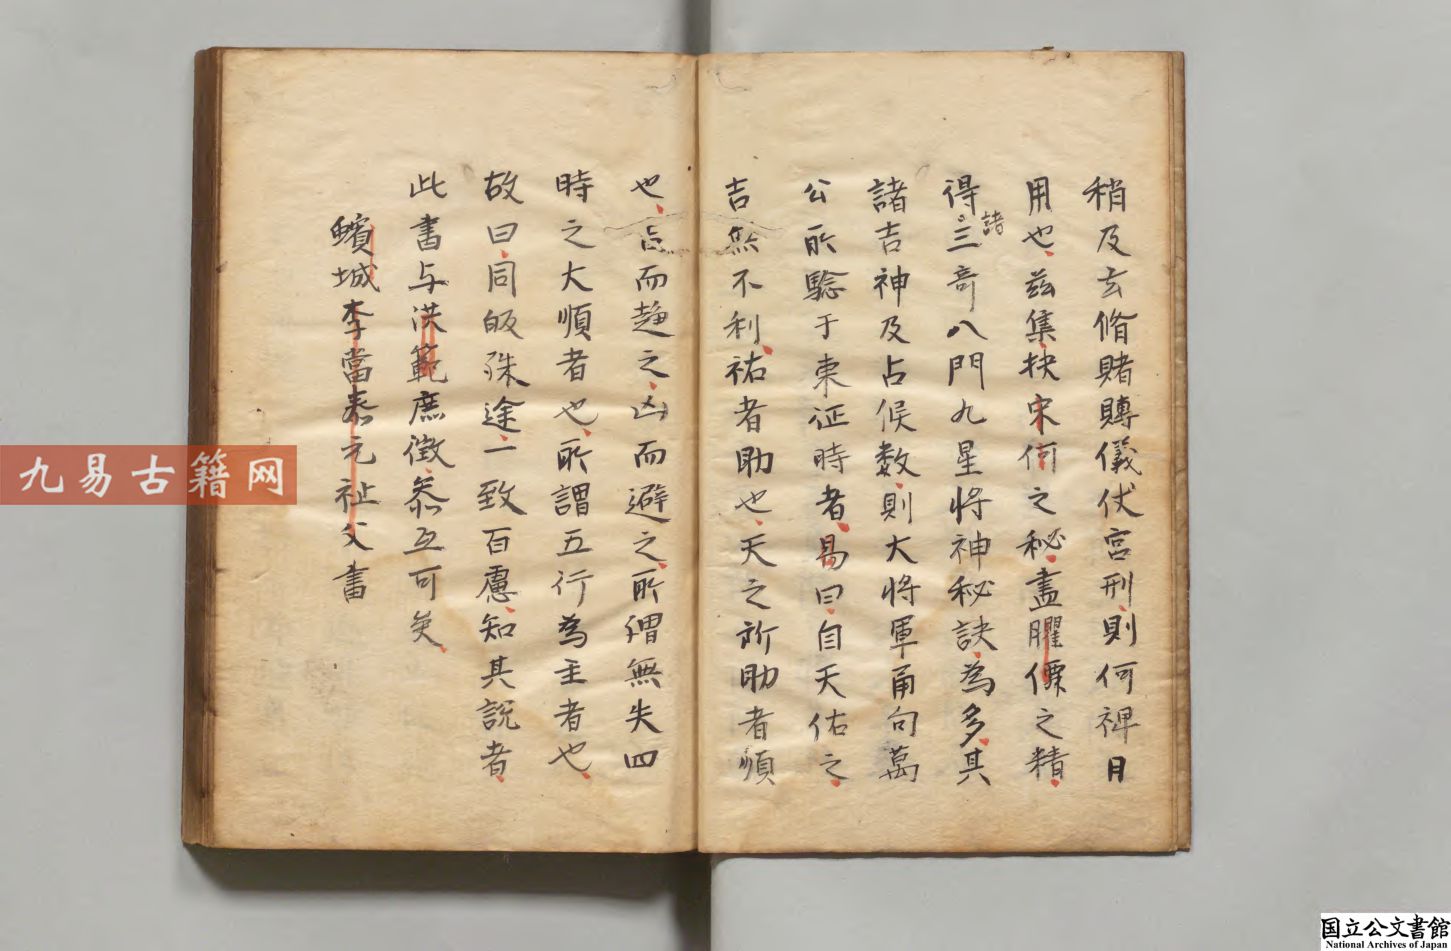 稍及玄脩賭賻儀伏宮刑則何裨日
用也茲集抉宋何之秘盡臞僊之精
得諸三奇八門九星將神秘訣為多其
諸吉神及占候数則大將軍甬句萬
公所驗于東征時者易曰自天佑之
吉無不利祐者助也天之所助者順
也吉而趨之凶而避之所謂無失四
時之大順者也所謂五行為主者也
故曰同皈殊途一致百慮知其說者
此書与洪範庶徵叅互可矣
蠙城李當泰元祉父書
九易古籍网
国立公文書館
National Archives of Japan